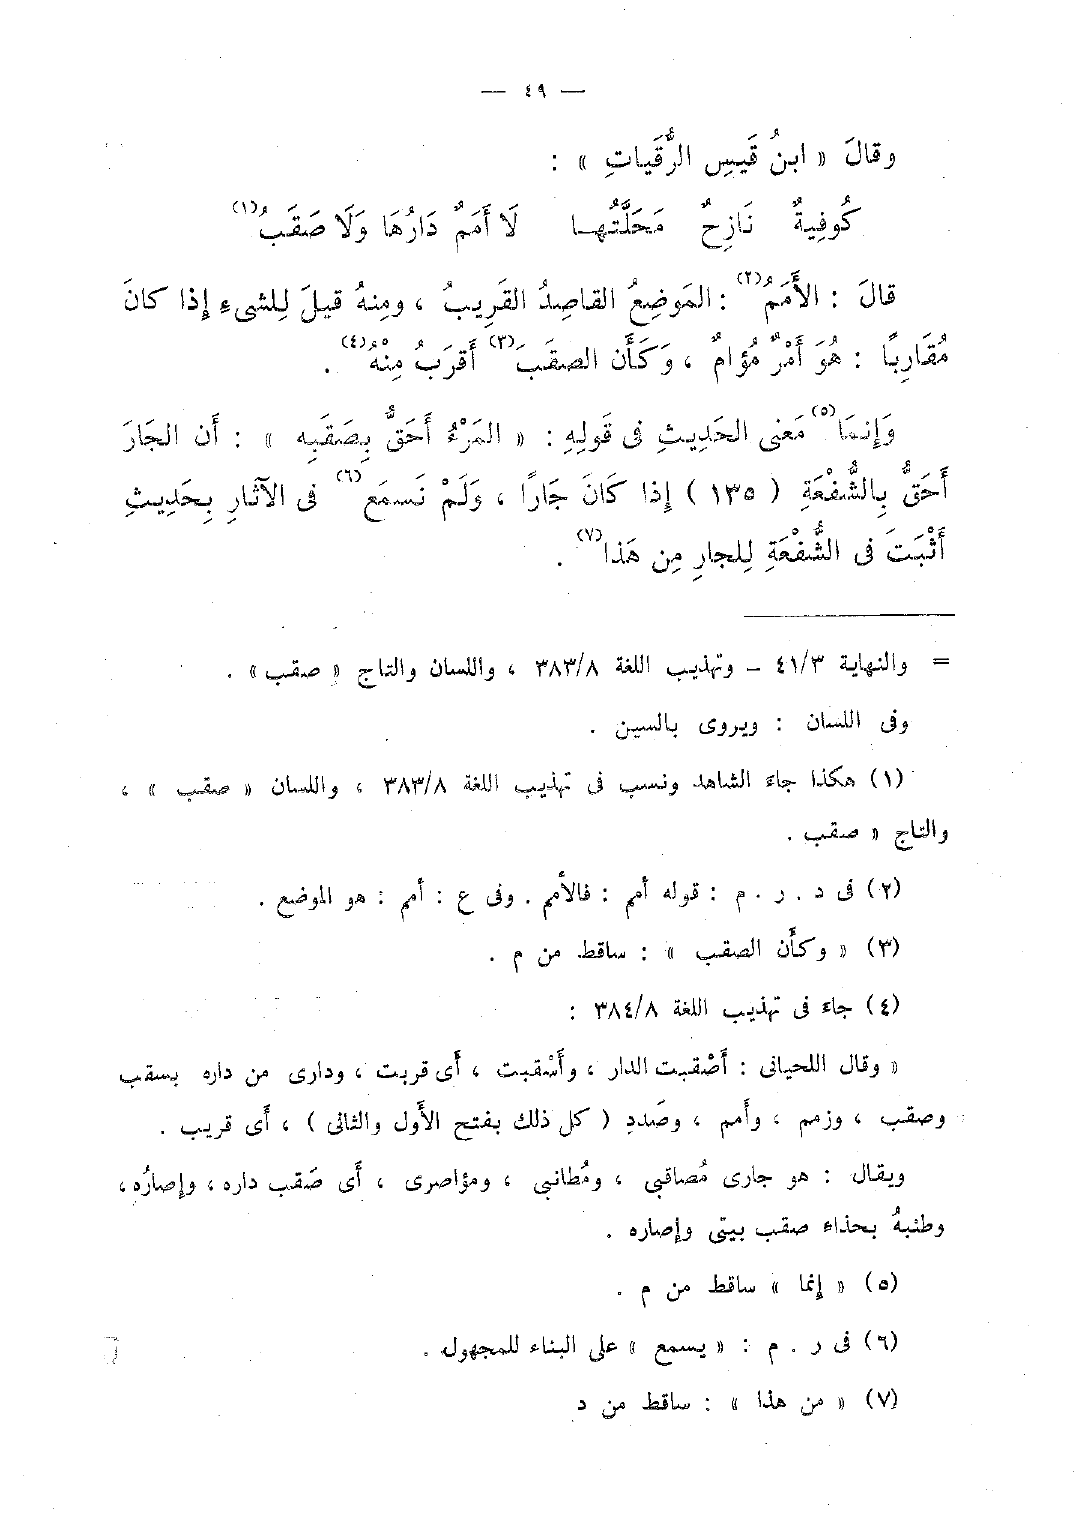 — ٤٩ —
وقالَ « ابنُ قَيسِ الرُّقَيّاتِ » :
كُوفِيةٌ نَازِحٌ مَحَلَّتُهـا لَا أَمَمٌ دَارُهَا وَلَا صَقَبُ(١)
قالَ : الأَمَمُ(٢) : المَوضِعُ القاصِدُ القَرِيبُ ، ومِنهُ قيلَ لِلشىءِ إِذا كانَ
مُقَارِبًا : هُوَ أَمْرٌ مُؤامٌ ، وَكَأَن الصقَبَ(٣) أَقرَبُ مِنْهُ(٤) .
وَإِنمَا(٥) مَعنى الحَدِيثِ فى قَولِهِ : « المَرْءُ أَحَقُّ بِصَقَبِه » : أَن الجَارَ
أَحَقُّ بِالشُّفْعَةِ ( ١٣٥ ) إِذا كَانَ جَارًا ، وَلَمْ نَسمَع(٦) فى الآثارِ بِحَدِيثٍ
أَثْبَتَ فى الشُّفْعَةِ لِلجارِ مِن هَذا(٧) .
= والنهاية ٤١/٣ – وتهذيب اللغة ٣٨٣/٨ ، واللسان والتاج « صقب» .
وفى اللسان : ويروى بالسين .
(١) هكذا جاء الشاهد ونسب فى تهذيب اللغة ٣٨٣/٨ ، واللسان « صقب » ،
والتاج « صقب .
(٢) فى د . ر . م : قوله أمم : فالأَمم . وفى ع : أمم : هو الموضع .
(٣) « وكأَن الصقب » : ساقط من م .
(٤) جاء فى تهذيب اللغة ٣٨٤/٨ :
« وقال اللحيانى : أَصْقبت الدار ، وأَسْقبت ، أَى قربت ، ودارى من داره بسقب
وصقب ، وزمم ، وأَمم ، وصَددِ ( كل ذلك بفتح الأَول والثانى ) ، أَى قريب .
ويقال : هو جارى مُصاقبى ، ومُطانبى ، ومؤاصرى ، أَى صَقب داره ، وإِصارُه ،
وطنبهُ بحذاء صقب بيتى وإِصاره .
(٥) « إِنما » ساقط من م .
(٦) فى ر . م : « يسمع » على البناء للمجهول .
(٧) « من هذا » : ساقط من د